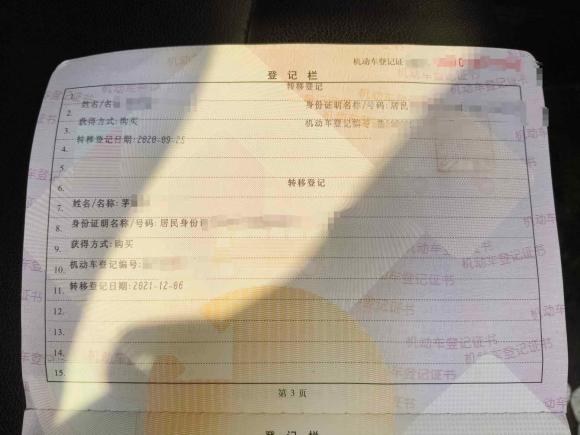 机动车登记证
登 记 栏
1. 转移登记
2. 姓名/名 身份证明名称/号码:居民
3. 获得方式:购买 机动车登记编号
4. 转移登记日期:2020-09-25
5.
6. 转移登记
7. 姓名/名称:茅
8. 身份证明名称/号码:居民身份
9. 获得方式:购买
10. 机动车登记编号:
11. 转移登记日期:2021-12-06
12.
13.
14.
15.
第 3 页
登 记 栏
机动车登记证书
机动车登记证书